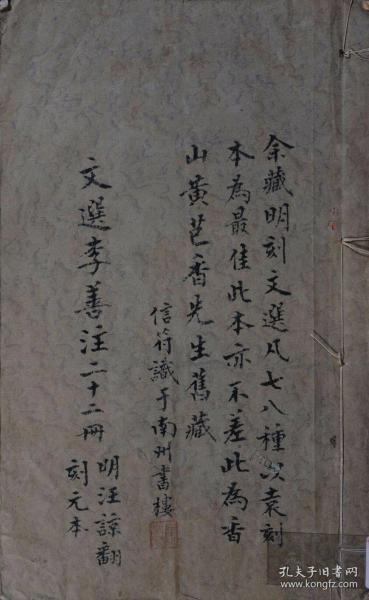 余藏明刻文選凡七八種以袁刻
本為最佳此本亦不差此為香
山黃芑香先生舊藏
信符識于南州書樓
文選李善注二十二冊
明汪諒翻
刻元本
孔夫子旧书网